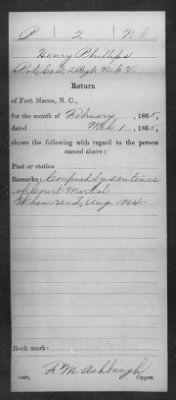 P 2 N.C.
Henry Phillips
Pvt, Co. 2 Regt. N.C. V.
Return
of Fort Macon, N. C.,
for the month of February, 1865,
dated Mch 1, 1865,
shows the following with regard to the person
named above:
Post or station
Remarks: Confined by sentence
of Court Martial
Aug 1864.
Book mark:
D M Ashbaugh
Copyist.